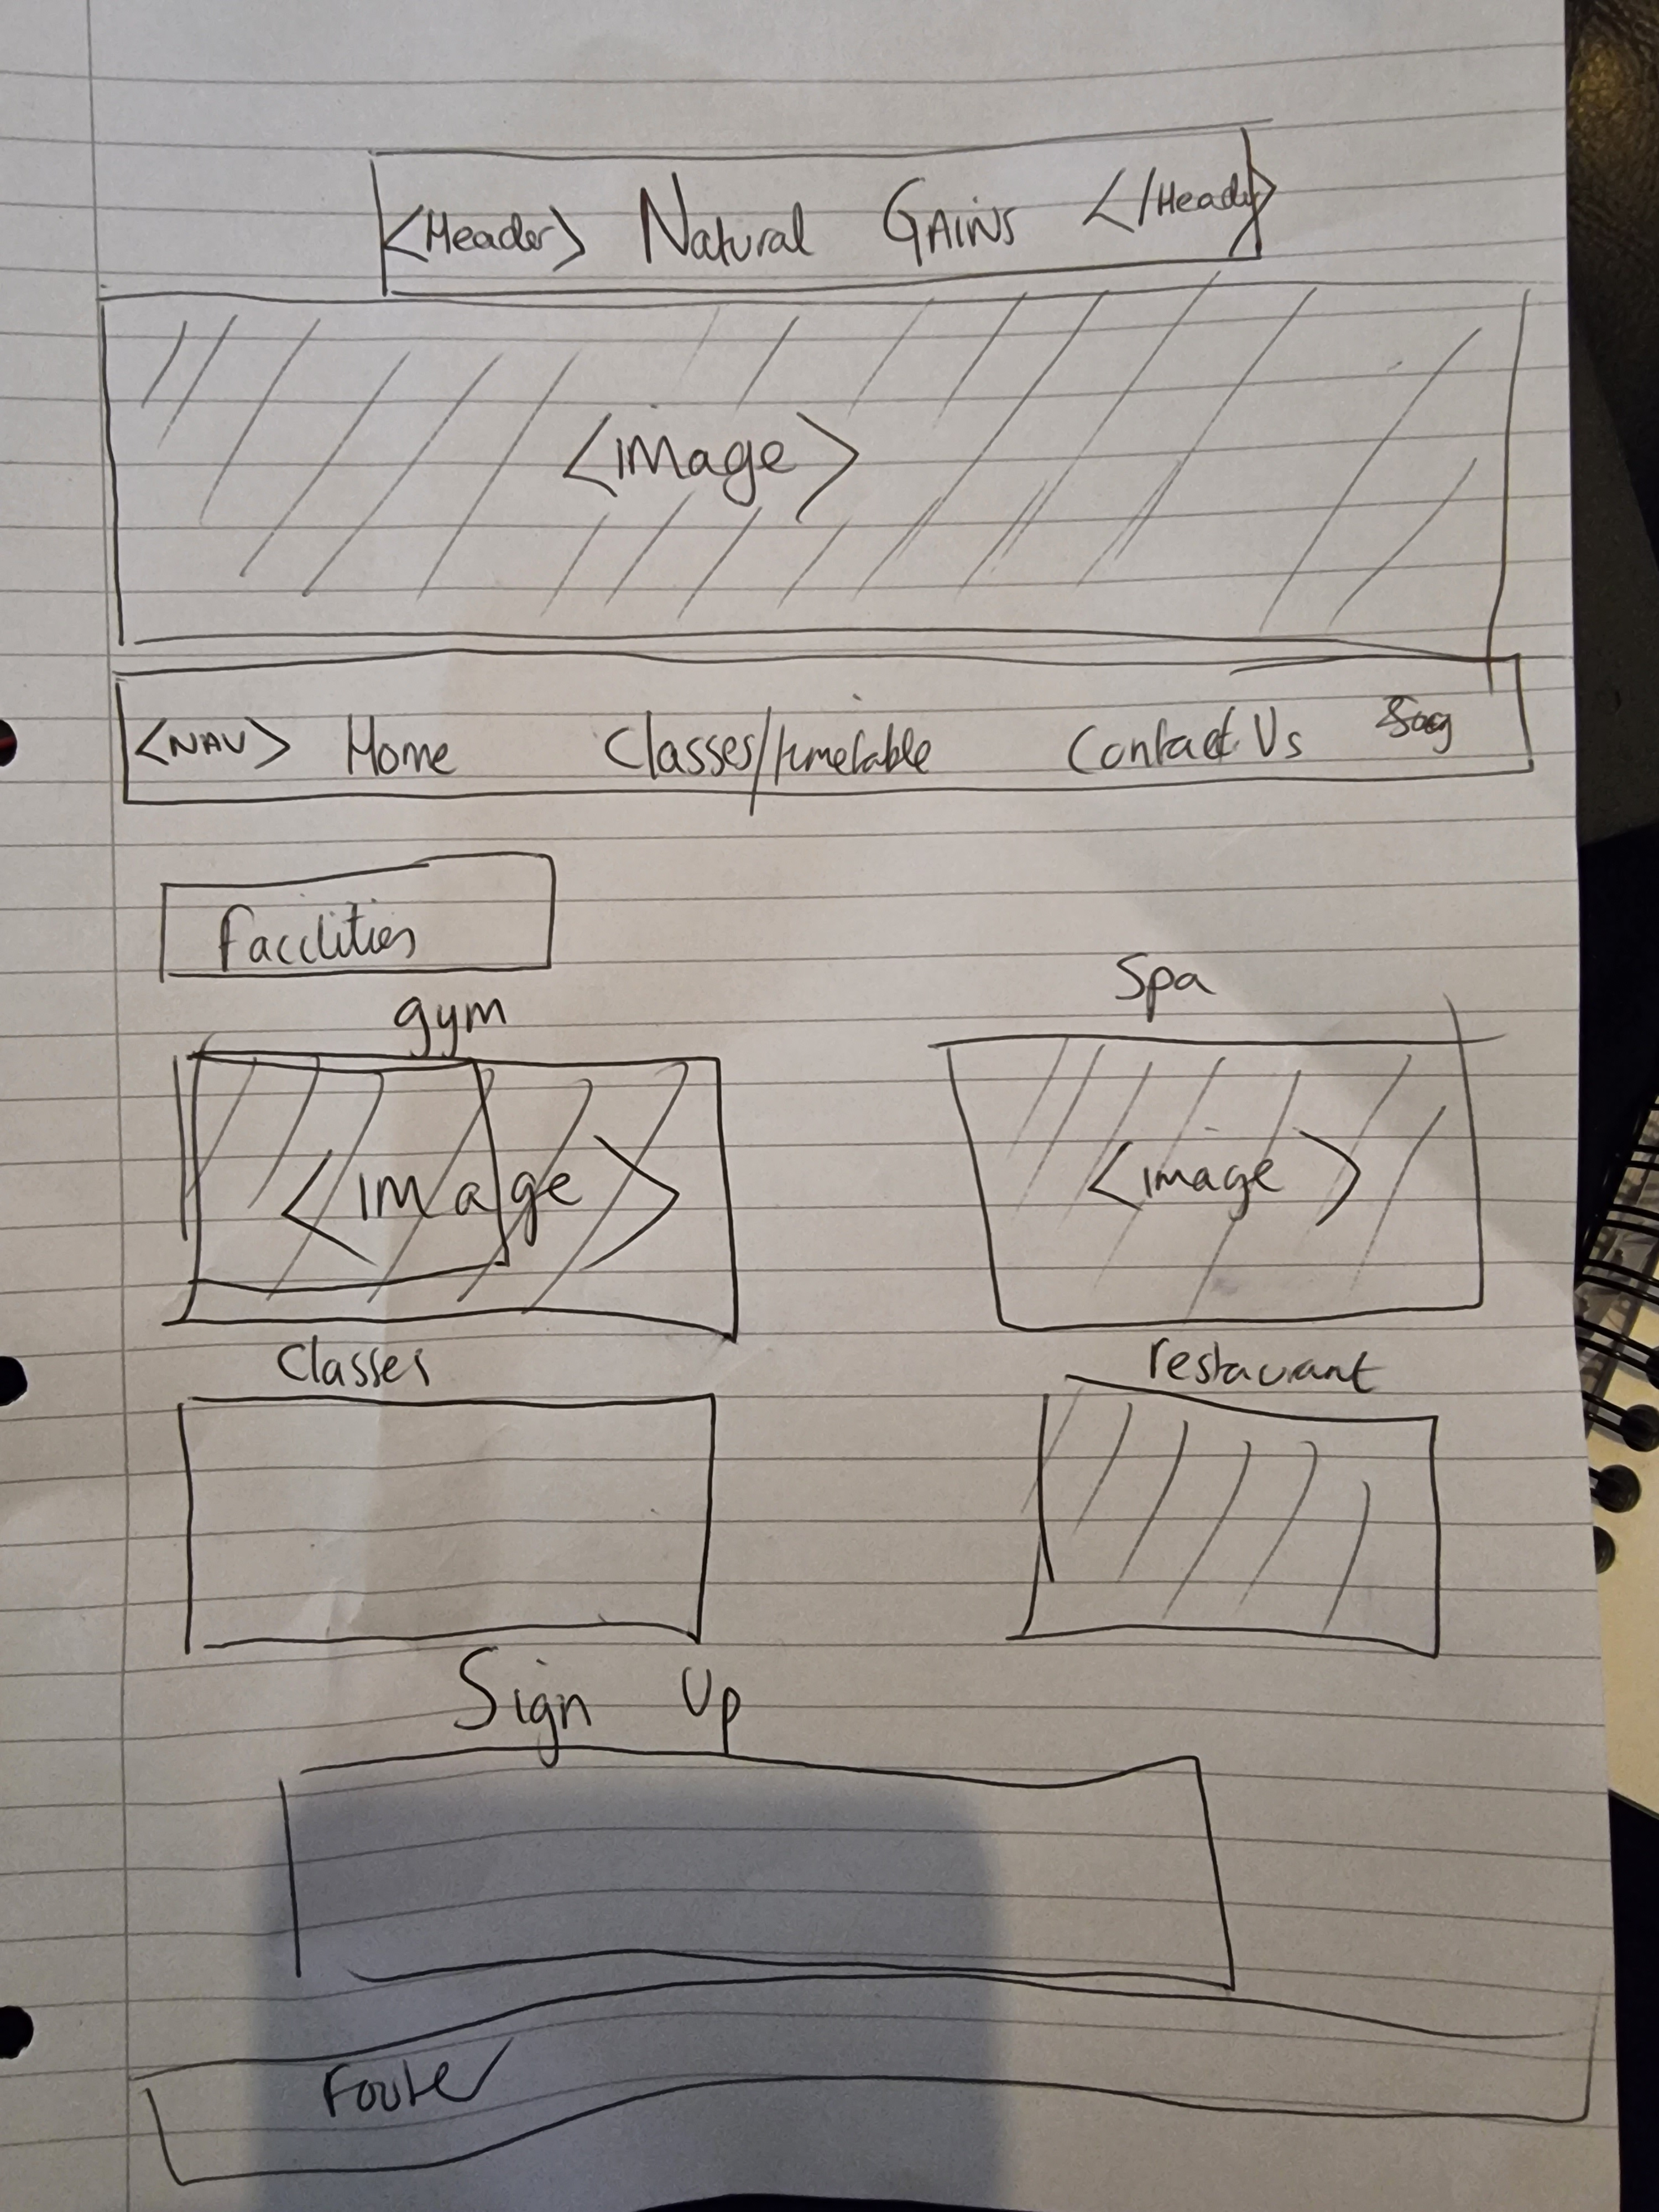 <Header> Natural GAINS </Header>
<image>
<NAV> Home Classes/timetable Contact Us
Facilities
gym Spa
<image> <image>
Classes restaurant
Sign Up
Footer